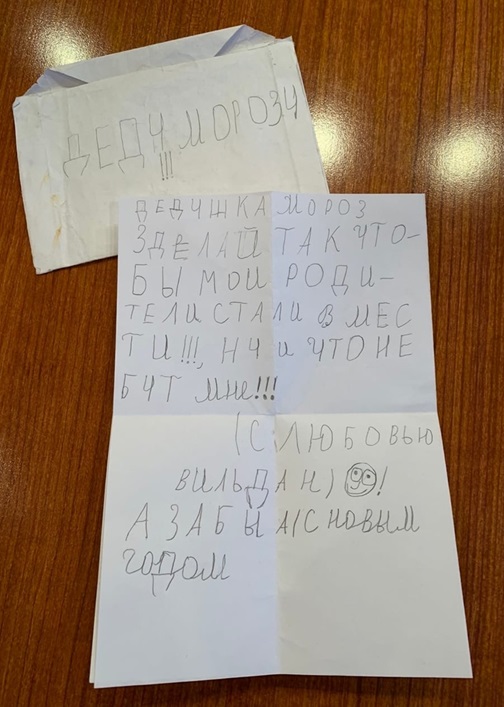 ДЕДУ МОРОЗУ
!!!
ДЕДУШКА МОРОЗ
ЗДЕЛАЙ ТАК ЧТО-
БЫ МОИ РОДИ-
ТЕЛИ СТАЛИ В МЕС
ТИ!!!, НУ И ЧТО НЕ
БУТ мне!!!
(С ЛЮБОВЬЮ
ВИЛЬДАН)!
А ЗАБЫ А(С НОВЫМ
ГОДОМ